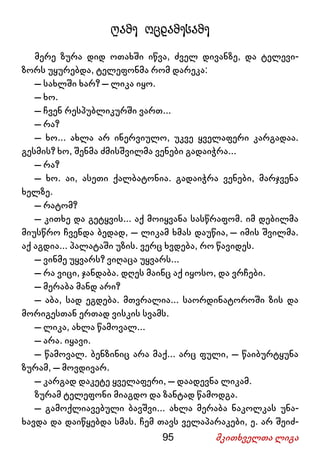 ღამე ოცდამესამე
მერე ზურა დიდ ოთახში იწვა, ძველ დივანზე, და ტელევი-
ზორს უყურებდა, ტელეფონმა რომ დარეკა:
— სახლში ხარ? — ლიკა იყო.
— ხო.
— ჩვენ რესპუბლიკურში ვართ...
— რა?
— ხო... ახლა არ ინერვიულო, უკვე ყველაფერი კარგადაა.
გესმის? ხო, შენმა ძმისშვილმა ვენები გადაიჭრა...
— რა?
— ხო. აი, ასეთი ქალბატონია. გადაიჭრა ვენები, მარჯვენა
ხელზე.
— რატომ?
— კითხე და გეტყვის... აქ მოიყვანა სასწრაფომ. იმ დებილმა
მიუსწრო ჩვენდა ბედად, — ლიკამ ხმას დაუწია, — იმის შვილმა.
აქ აგდია... პალატაში უზის. ვერც ხვდება, რო წავიდეს.
— ვინმე უყვარს? ვიღაცა უყვარს...
— რა ვიცი, ჯანდაბა. დღეს მაინც აქ იყოსო, და ვრჩები.
— მერაბა მანდ არი?
— აბა, სად ეგდება. მთვრალია... საორდინატოროში ზის და
მორიგესთან ერთად ვისკის სვამს.
— ლიკა, ახლა წამოვალ...
— არა. იყავი.
— წამოვალ. ბენზინიც არა მაქ... არც ფული, — წაიბურტყუნა
ზურამ, — მოვდივარ.
— კარგად დაკეტე ყველაფერი, — დაადევნა ლიკამ.
ზურამ ტელეფონი მიაგდო და ზანტად წამოდგა.
— გამოქლიავებული ბავშვი... ახლა მერაბა ნაკოლკას უნა-
ხავდა და დაიწყებდა სმას. ჩემ თავს ველაპარაკები, ე. არ შეიძ-
95 მკითხველთა ლიგა